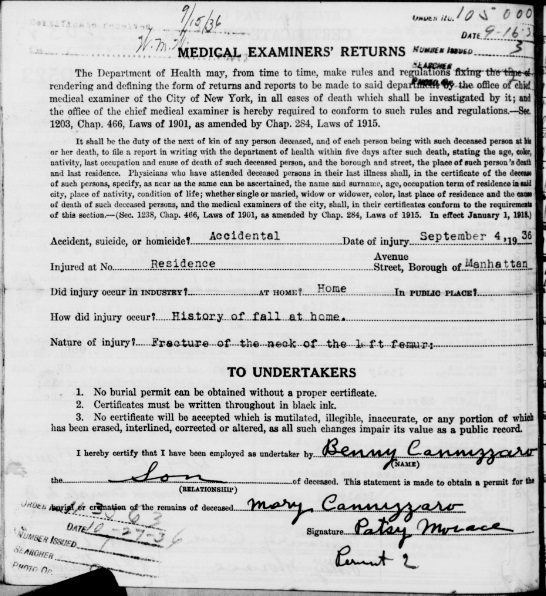 9/15/36
ORDER NO. 105 000
DATE 9-16-3
NUMBER ISSUED 3
SEARCHER
PHOTO OP.
MEDICAL EXAMINERS' RETURNS
The Department of Health may, from time to time, make rules and regulations fixing the time of
rendering and defining the form of returns and reports to be made to said department by the office of chief
medical examiner of the City of New York, in all cases of death which shall be investigated by it; and
the office of the chief medical examiner is hereby required to conform to such rules and regulations.—Sec.
1203, Chap. 466, Laws of 1901, as amended by Chap. 284, Laws of 1915.
It shall be the duty of the next of kin of any person deceased, and of each person being with such deceased person at his
or her death, to file a report in writing with the department of health within five days after such death, stating the age, color,
nativity, last occupation and cause of death of such deceased person, and the borough and street, the place of such person's death
and last residence. Physicians who have attended deceased persons in their last illness shall, in the certificate of the decease
of such persons, specify, as near as the same can be ascertained, the name and surname, age, occupation term of residence in said
city, place of nativity, condition of life; whether single or married, widow or widower, color, last place of residence and the cause
of death of such deceased persons, and the medical examiners of the city, shall, in their certificates conform to the requirements
of this section.—(Sec. 1238, Chap. 466, Laws of 1901, as amended by Chap. 284, Laws of 1915. In effect January 1, 1918.)
Accident, suicide, or homicide? Accidental Date of injury September 4, 19 36
Injured at No. Residence Avenue Street, Borough of Manhattan
Did injury occur in INDUSTRY? AT HOME? Home In PUBLIC PLACE?
How did injury occur? History of fall at home.
Nature of injury? Fracture of the neck of the left femur:
TO UNDERTAKERS
1. No burial permit can be obtained without a proper certificate.
2. Certificates must be written throughout in black ink.
3. No certificate will be accepted which is mutilated, illegible, inaccurate, or any portion of which
has been erased, interlined, corrected or altered, as all such changes impair its value as a public record.
I hereby certify that I have been employed as undertaker by Benny Cannizzaro
(NAME)
the Son of deceased. This statement is made to obtain a permit for the
(RELATIONSHIP)
burial or cremation of the remains of deceased Mary Cannizzaro
Signature Patsy Morace
Permit 2
ORDER NO.
DATE 10-27-36
NUMBER ISSUED 1
SEARCHER
PHOTO OP.